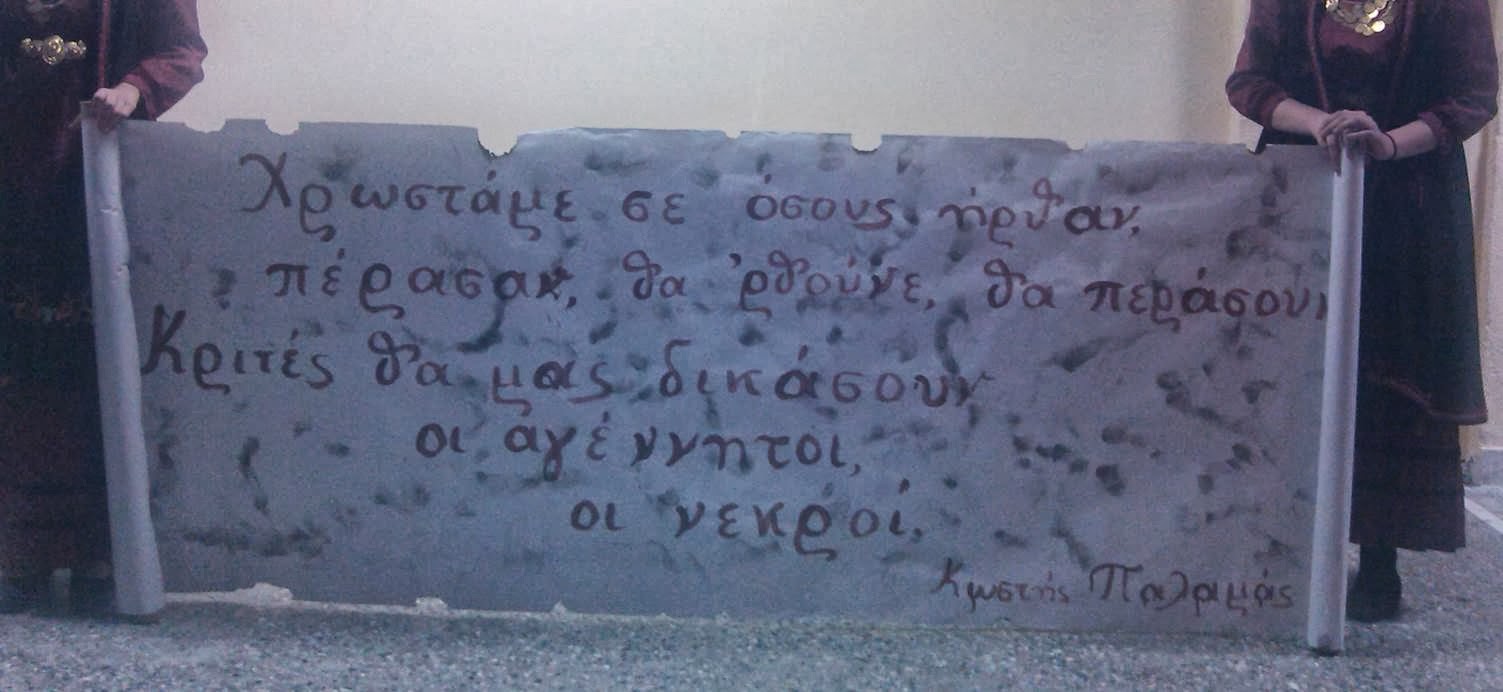 Χρωστάμε σε όσους ήρθαν,
πέρασαν, θα 'ρθούνε, θα περάσουν
Κριτές θα μας δικάσουν
οι αγέννητοι,
οι νεκροί.
Κωστής Παλαμάς